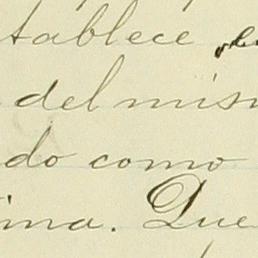 tablece
del mism
do como
ima. Que